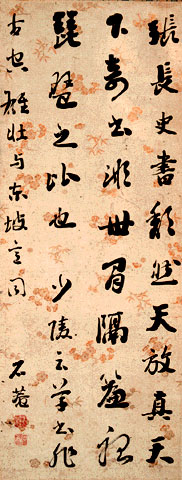 張長史書頹然天放真天
下奇書世間隔簾聽
琵琶之比也少陵云草書非
古空雄壯与東坡意同
石菴